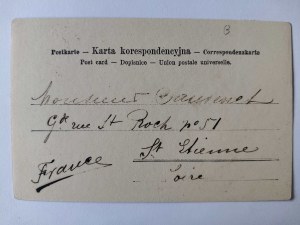 B
Postkarte – Karta korespondencyjna – Correspondenzkarte
Post card – Dopisnice – Union postale universelle.
Monsieur
Gde rue St Roch no 51
St Etienne
Loire
France